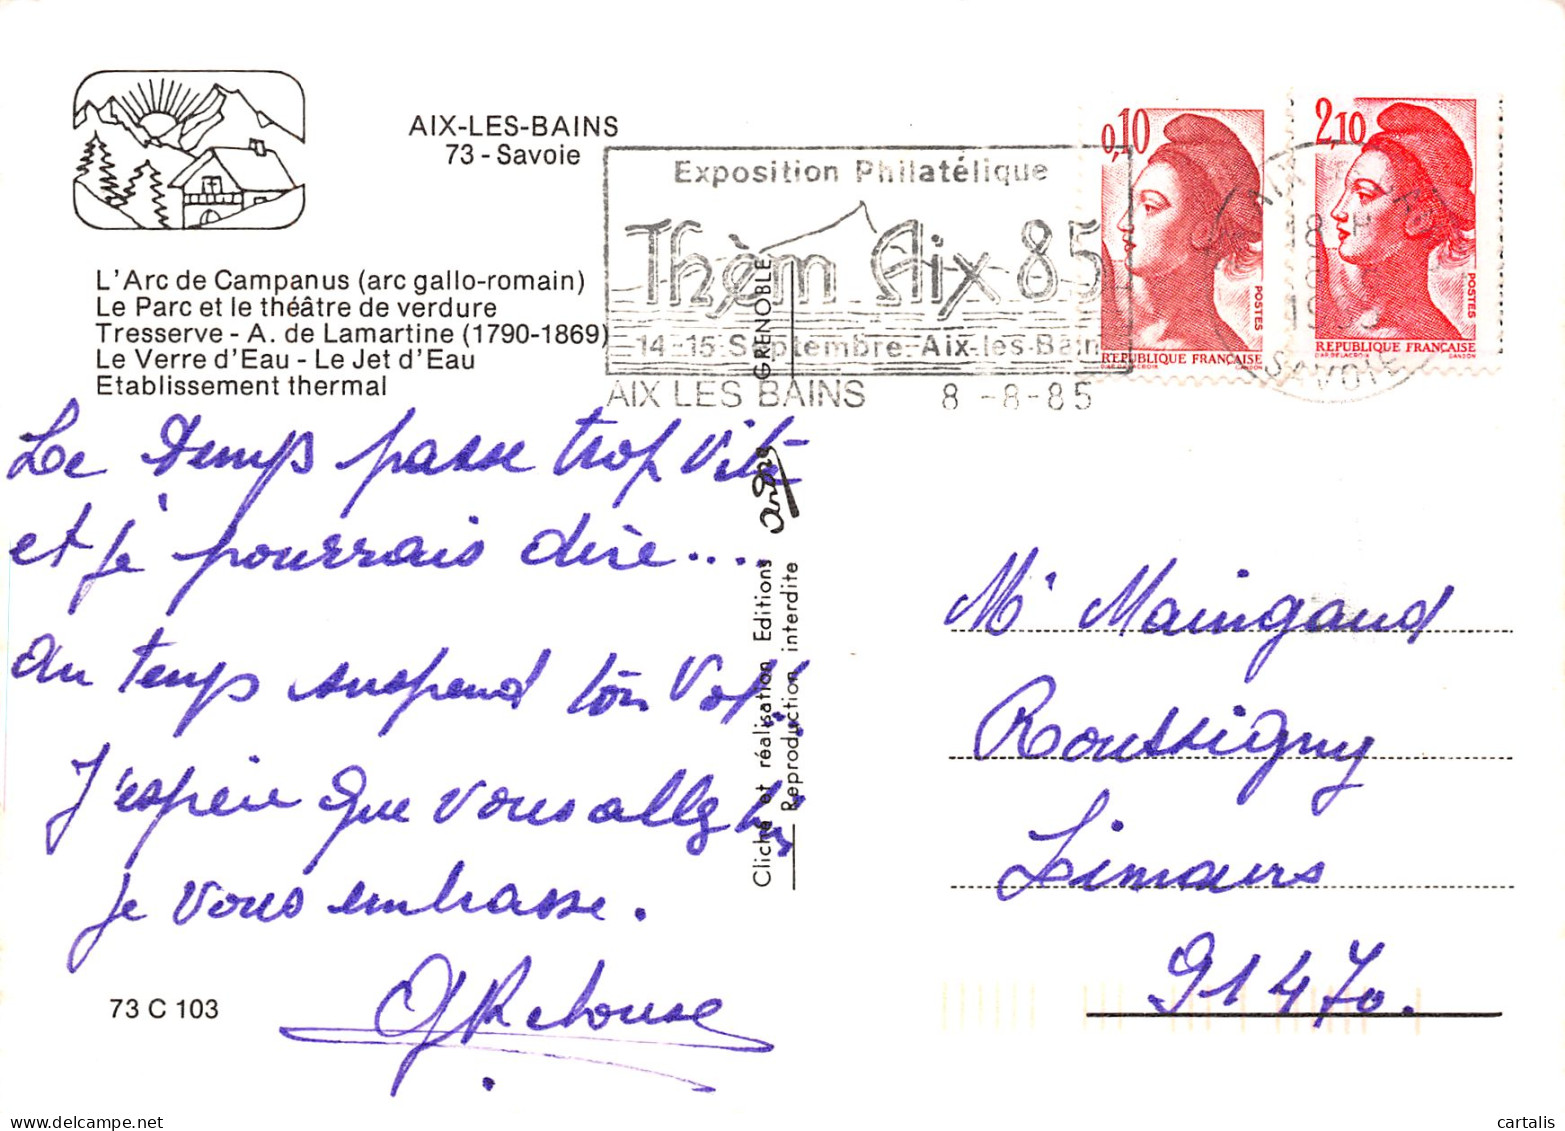 AIX-LES-BAINS
73 - Savoie
L'Arc de Campanus (arc gallo-romain)
Le Parc et le théâtre de verdure
Tresserve - A. de Lamartine (1790-1869)
Le Verre d'Eau - Le Jet d'Eau
Etablissement thermal
Exposition Philatélique
Thèm Aix 85
14-15 Septembre Aix-les-Bain
AIX LES BAINS 8 -8-85
0,10
POSTES
REPUBLIQUE FRANÇAISE
D'AP. DELACROIX GANDON
2,10
POSTES
REPUBLIQUE FRANÇAISE
D'AP. DELACROIX GANDON
18
8
1985
SAVOIE
Le Temps passe trop vite
et je pourrais dire....
Au temps suspend ton Vol!
J'espère que vous allez bien
je vous embrasse.
73 C 103
Cliché et réalisation Editions andré GRENOBLE
Reproduction interdite
Mr Maingaud
Roussigny
Limours
91470.
cartalis